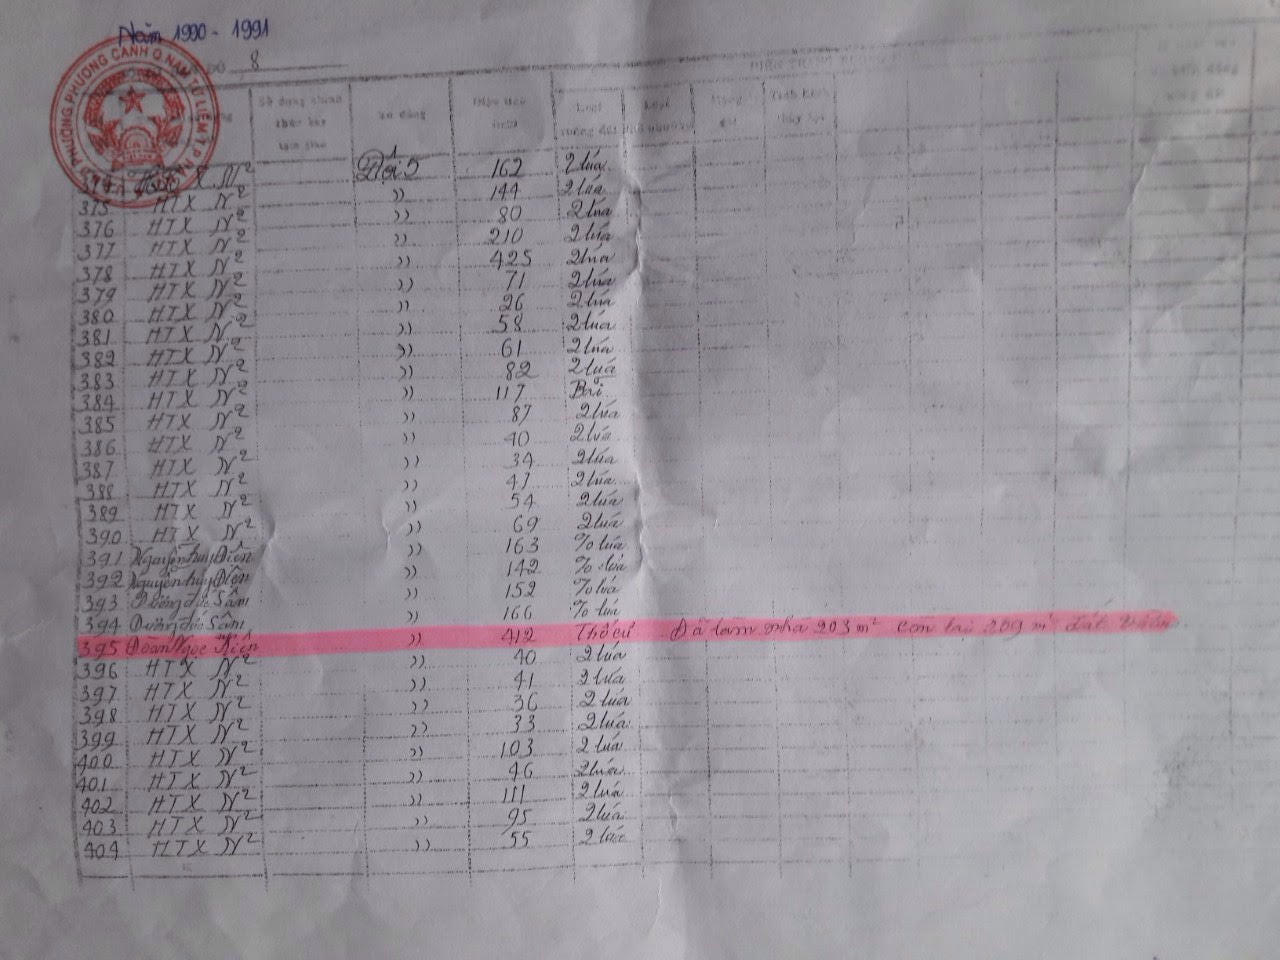 Năm 1990 - 1991
8
Diện tích
Loại
Sử dụng chính
Xứ đồng
ruộng đất
374 HTX N² Đội 5 162 2 lúa
375 HTX N² )) 144 2 lúa
376 HTX N² )) 80 2 lúa
377 HTX N² )) 210 2 lúa
378 HTX N² )) 425 2 lúa
379 HTX N² )) 71 2 lúa
380 HTX N² )) 26 2 lúa
381 HTX N² )) 58 2 lúa
382 HTX N² )) 61 2 lúa
383 HTX N² )) 82 2 lúa
384 HTX N² )) 117 Bãi
385 HTX N² )) 87 2 lúa
386 HTX N² )) 40 2 lúa
387 HTX N² )) 34 2 lúa
388 HTX N² )) 47 2 lúa
389 HTX N² )) 54 2 lúa
390 HTX N² )) 69 2 lúa
391 Nguyễn Huy Điền )) 163 % lúa
392 Nguyễn Huy Điền )) 142 % lúa
393 Dương Đức Sâm )) 152 % lúa
394 Dương Đức Sâm )) 166 % lúa
395 Đoàn Ngọc )) 412 Thổ cư Đã làm nhà 203 m² còn lại 209 m² đất vườn
396 HTX N² )) 40 2 lúa
397 HTX N² )) 41 2 lúa
398 HTX N² )) 36 2 lúa
399 HTX N² )) 33 2 lúa
400 HTX N² )) 103 2 lúa
401 HTX N² )) 46 2 lúa
402 HTX N² )) 111 2 lúa
403 HTX N² )) 95 2 lúa
404 HTX N² )) 55 2 lúa